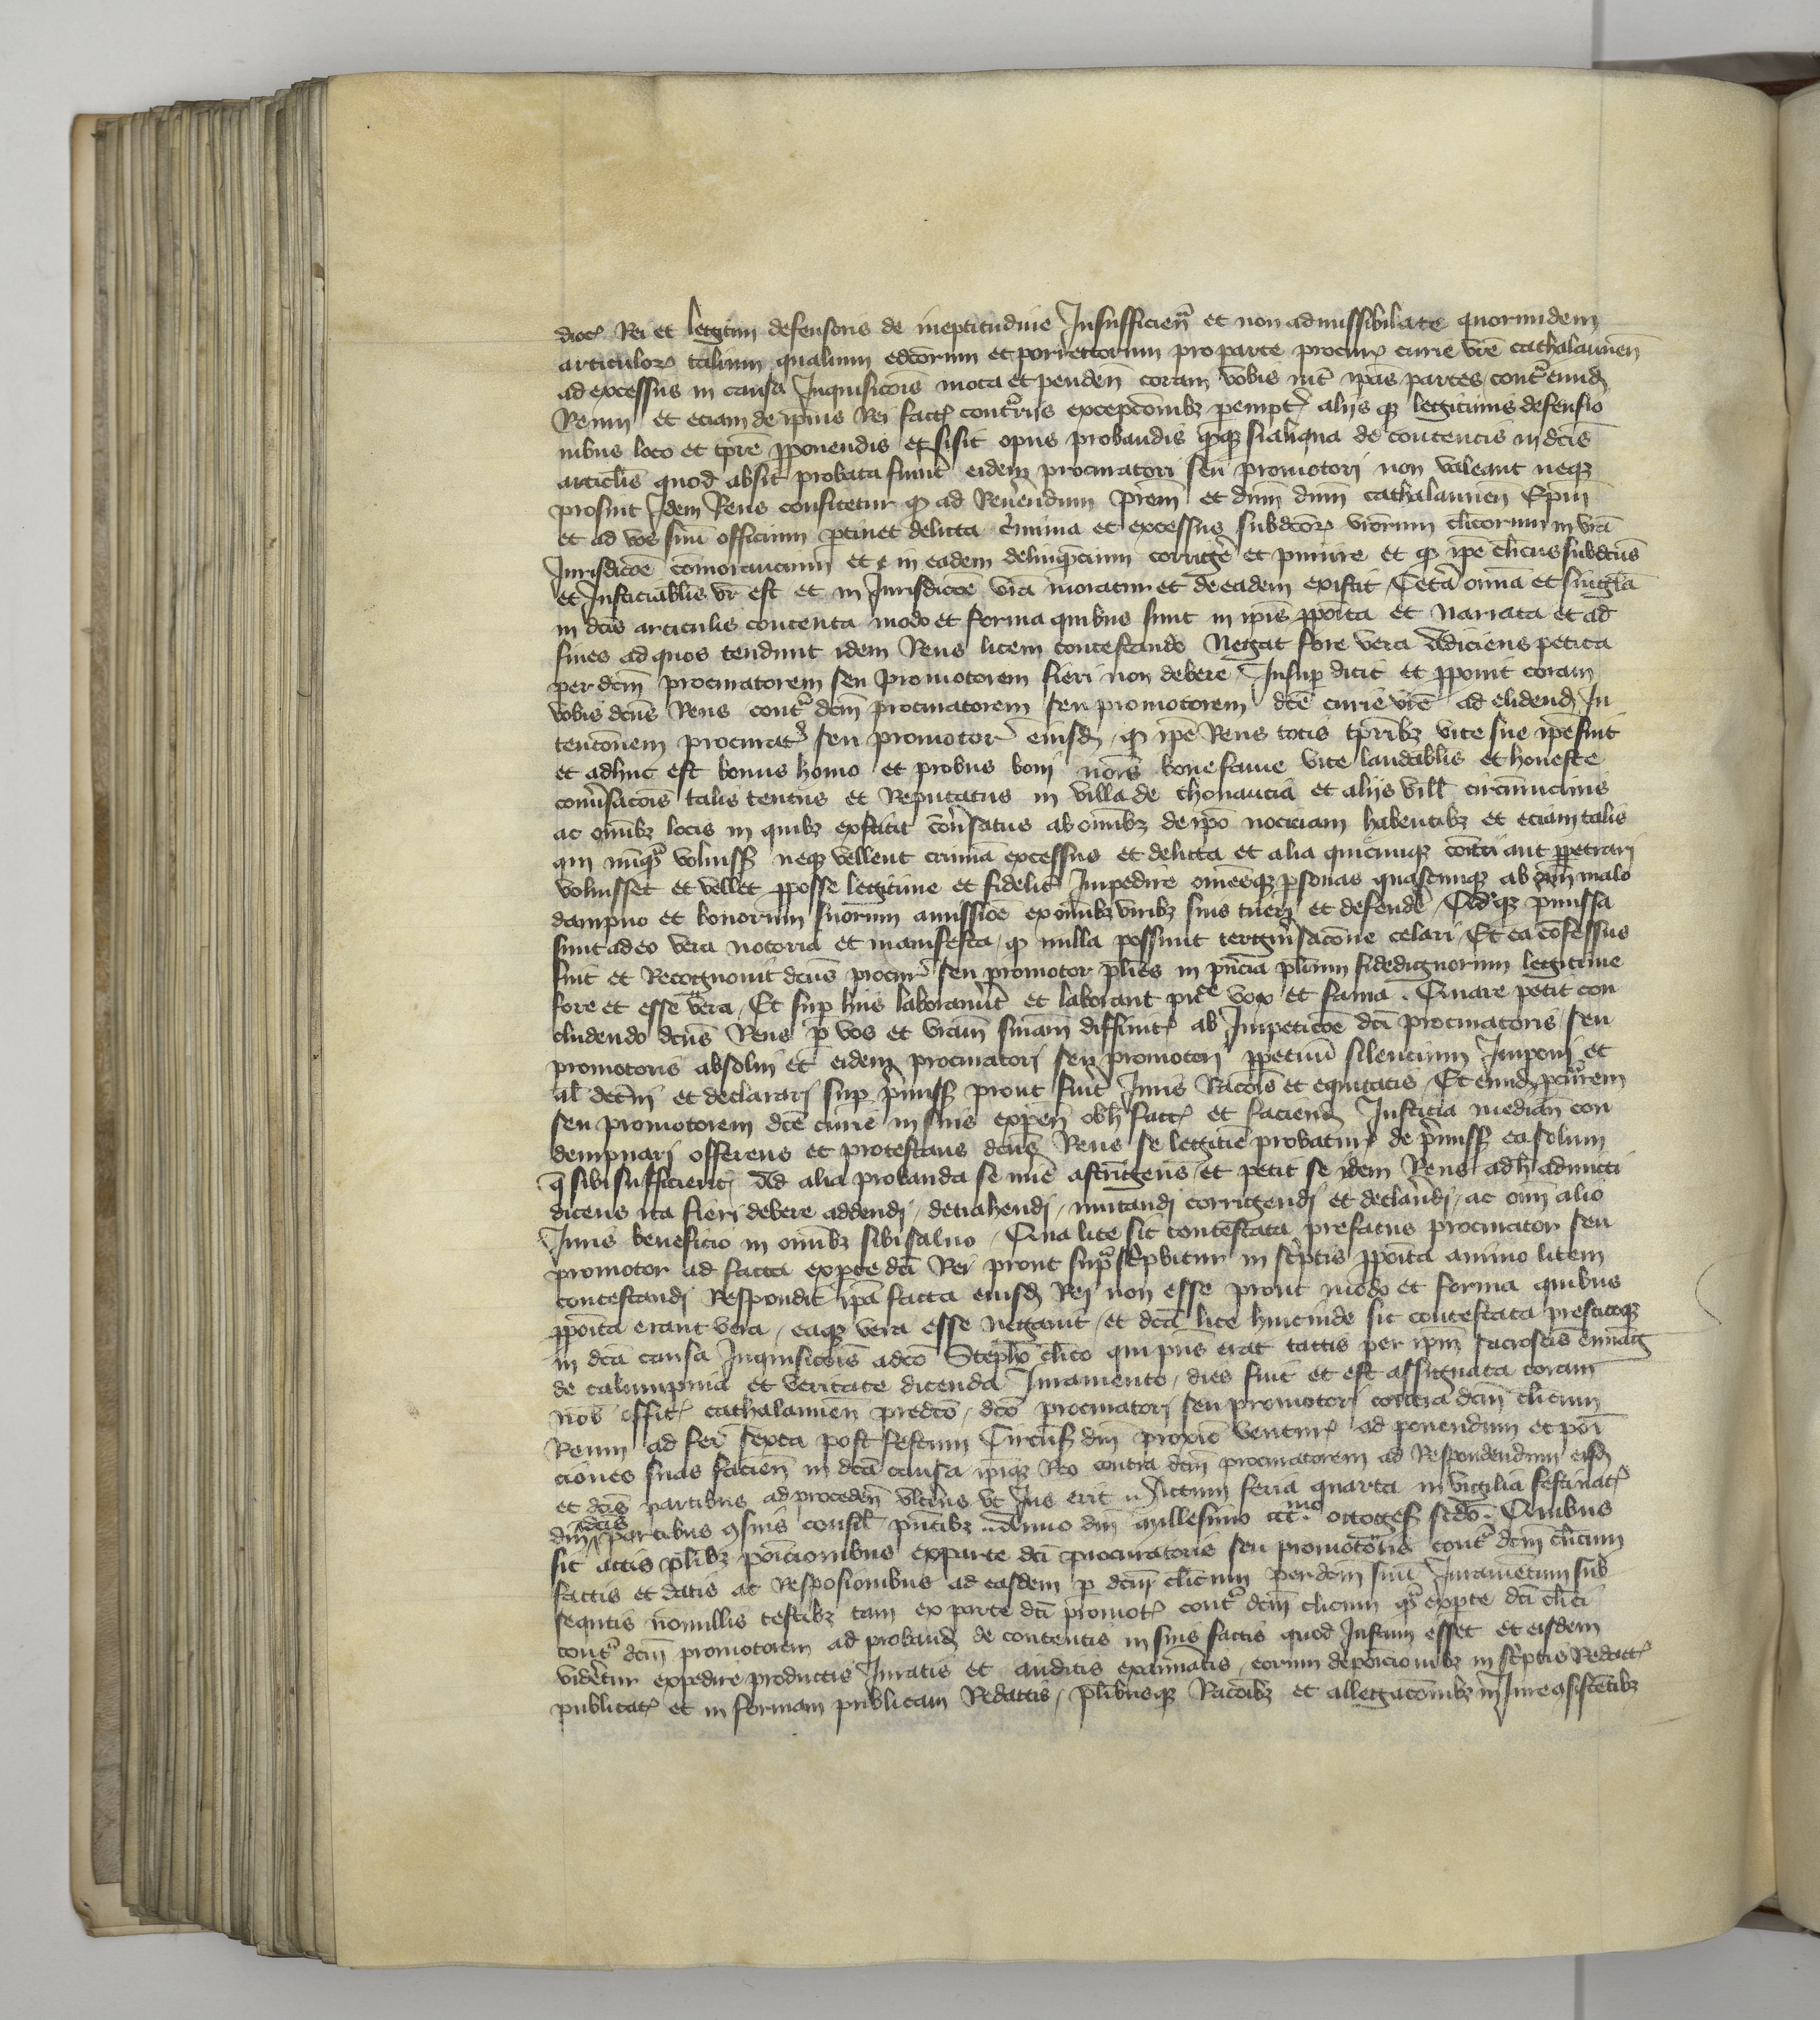 dicti Rei et legitim defensoris de ineptitudine Insufficien̄ et non admissibilate quorumdem
articulor talium qualium edictorum et porrectorum pro parte procur curie vr̄e cathalaunen̄
ad excessus in causa Inquisicōis mota et penden̄ coram vobis int̄ ip̄as partes cont eund
Reum et eciam de ip̄ius Rei fact contrijs excepcōnibȝ pempt alijs qȝ legitimis defensio
nibus loco et tp̄re p̄ponendis et si sit opus probandis si aliqua de contentis in dc̄is
articl̄is quod absit probata fuint eidem procuratori seu promotori non valeant neqȝ
prosint Idem Reus confitetur qȝ ad Reuerendum prēm et dn̄m dn̄m cathalaunen̄ Ep̄m
et ad vos suū officium ptinet delicta crimina et excessus subdictor vrōrum clicorum in vr̄a
Iurisdicōe cōmorancium et in eadem delinqcium corrige et punire et qȝ ip̄e clicus subdtus
et Insticiablis vr̄ est et in Iurisdicōe vr̄a moratur et de eadem existit Cetā om̄a et singl̄a
in dc̄is articulis contenta modo et forma quibus sunt in ip̄is pposita et narrata et ad
fines ad quos tendunt idem Reus litem contestando Negat fore vera Adiciens petita
per dcm̄ procuratorem seu promotorem fieri non debere Insup dicit et pponit coram
vobis dcūs Reus cont dcm̄ procuratorem seu promotorem dcē curie vr̄e ad elidend In
tencōnem procurat seu promotor eiusd qȝ ip̄e Reus totis tp̄ribȝ vite sue ip̄e fuit
et adhuc est bonus homo et probus boni nōis bone fame vite laudablis et honeste
conūsacōis talis tentus et Reputatus in villa de thonancia et alijs vill circūuicinis
ac om̄ibȝ locis in quibȝ exstitit conūsatus ab om̄ibȝ de ip̄o noticiam habentibȝ et eciam talis
qui nūqȝ voluiss neqȝ vellent crimīa excessus et delicta et alia quicunqȝ cōitti aut ppetrari
voluisset et vellet pposse legitime et fidelit Impedire om̄eēsqȝ psonas quascunqȝ ab om̄i malo
dampno et bonorum suorum amissiōe ex om̄ibȝ viribȝ suis tueri et defendē qȝ pmissa
sunt adeo vera notoria et manifesta qȝ nulla possunt tergiusacōne celari Et ea cōfessus
fuit et Recognouit dcūs procur seu promotor plies in pn̄cia pl̄rium fidedignorum legitime
fore et esse vera Et sup hiis laborauūt et laborant pūce vox et fama Quare petit con
cludendo dcūs Reus p vos et vr̄am sn̄iam diffinit ab Impeticōe dc̄i procuratoris seu
promotoris absolui et eidem procuratori seu promotori ppetuū silencium Imponi et
al dec̄ni et declarari sup pmiss prout fuit Iuris Racōis et equitatis Et eund pcur̄rem
seu promotorem dcē curie in suis expen̄ ob fact et faciend Insticia median̄ con
dempnari offerens et protestans dcūs Reus se legitīe probatur de pmiss ea solum
q̄ sibi sufficient Ad alia probanda se mie astringens et petit se idem Reus adh admitti
dicens ita fieri debere addendi detrahendi mutandi corrigendi et declarādi ac om̄i alio
Iuris beneficio in om̄ibȝ sibi saluo Qua lite sic contestata prefatus procurator seu
promotor ad facta ex pte dc̄i Rei prout sup scribitur in scptis pposita animo litem
contestandi Respondit ip̄a facta eiusd Rei non esse prout modo et forma quibus
pposita erant vera eaqȝ vera esse negauit et dc̄ā lite hincinde sic contestata prestitoqȝ
in dc̄ā causa Inquisicōis a dcō Stepho clico qui pn̄s erat tactis per ip̄m sacroscis euuāg
de calumpnia et veritate dicenda Iuramento dies fuit et est assignata coram
nob offit cathalaunen̄ predcō dcō procuratori seu promotori contra dcm̄ clicum
Reum ad feri sexta post festum Circūs dn̄i proxīe ventur ad ponendum et poi
ciones suas facien̄ in dc̄ā causa ip̄iqȝ Reo contra dcm̄ procuratorem ad Respondendum eisd
et dcīs partibus ad proceden̄ vlterius vt Ius erit Actum feria quarta in vigilia festi nat
dn̄i dcis partibus ꝯsuis consil pn̄tibȝ Anno dn̄i millesimo cccmo octoges scdō Quibus
sic actis pl̄ibȝ poicionibus ex parte dc̄i procuratoris seu promotoris cont dcm̄ clicum
factis et datis ac Resposionibus ad easdem p dcm̄ clicum per dcm̄ suū Iuramētum sub
seqntis nōnullis testibȝ tam ex parte dc̄i promot cont dcm̄ clicum qȝ ex pte dc̄i clici
cont dcm̄ promotorem ad proband de contentis in suis factis quod Instum esset et eisdem
videtur expedire productis Iuratis et auditis examinatis eorum depoicionibȝ in scptis Redact
publicat et in formam publicam Redactis pl̄ibusqȝ Racōibȝ et allegacōnibȝ in Iure ꝯsistētibȝ